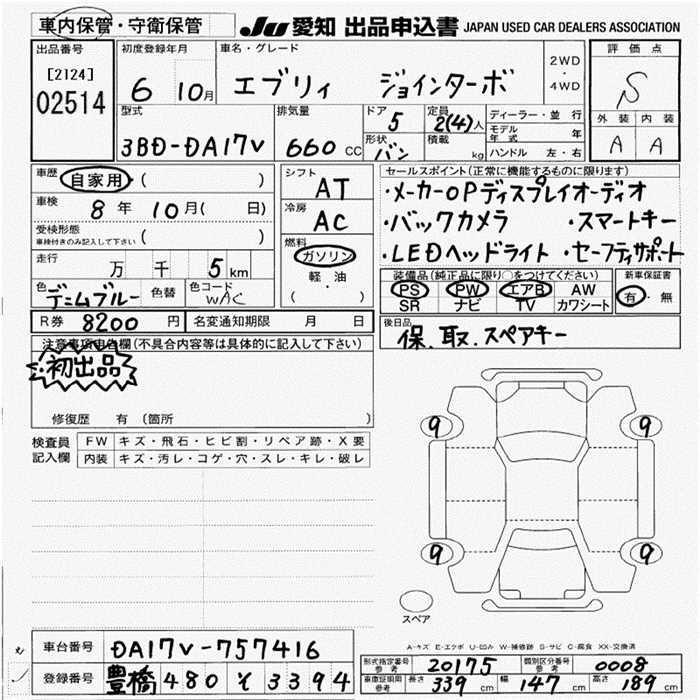 車内保管・守衛保管 JU 愛知 出品申込書 JAPAN USED CAR DEALERS ASSOCIATION
出品番号 [2124] 02514
初度登録年月 6 10月
車名・グレード エブリィ ジョインターボ
2WD・4WD
評価点 S
外装 A 内装 A
型式 3BD-DA17V
排気量 660 CC
ドア 5
形状 バン
定員 2(4)人
積載 kg
ディーラー・並行
モデル年式 年
ハンドル 左・右
車歴 自家用 ( )
車検 8年 10月( 日)
受検形態 車検付きのみ記入して下さい ( )
走行 万 千 5 km
色 デニムブルー 色替 色コード WAC
R券 8200円 名変通知期限 月 日
シフト AT
冷房 AC
燃料 ガソリン 軽・油 ( )
セールスポイント(正常に機能するものに限ります)
・メーカーOPディスプレイオーディオ
・バックカメラ ・スマートキー
・LEDヘッドライト ・セーフティサポート
装備品(純正品に限り○をつけてください) 新車保証書
PS PW エアB AW 有・無
SR ナビ TV カワシート
後日品 保.取.スペアキー
注意事項申告欄(不具合内容等は具体的に記入して下さい)
初出品
修復歴 有 (箇所 )
検査員記入欄 FW キズ・飛石・ヒビ割・リペア跡・X要
内装 キズ・汚レ・コゲ・穴・スレ・キレ・破レ
9 9
9 9
スペア
A-キズ E-エクボ U-凹み W-補修跡 S-サビ C-腐食 XX-交換済
車台番号 DA17V-757416
登録番号 豊橋 480 そ 3394
形式指定番号 参考 20175 類別区分番号 参考 0008
車庫証明用 参考 長さ 339 cm 幅 147 cm 高さ 189 cm